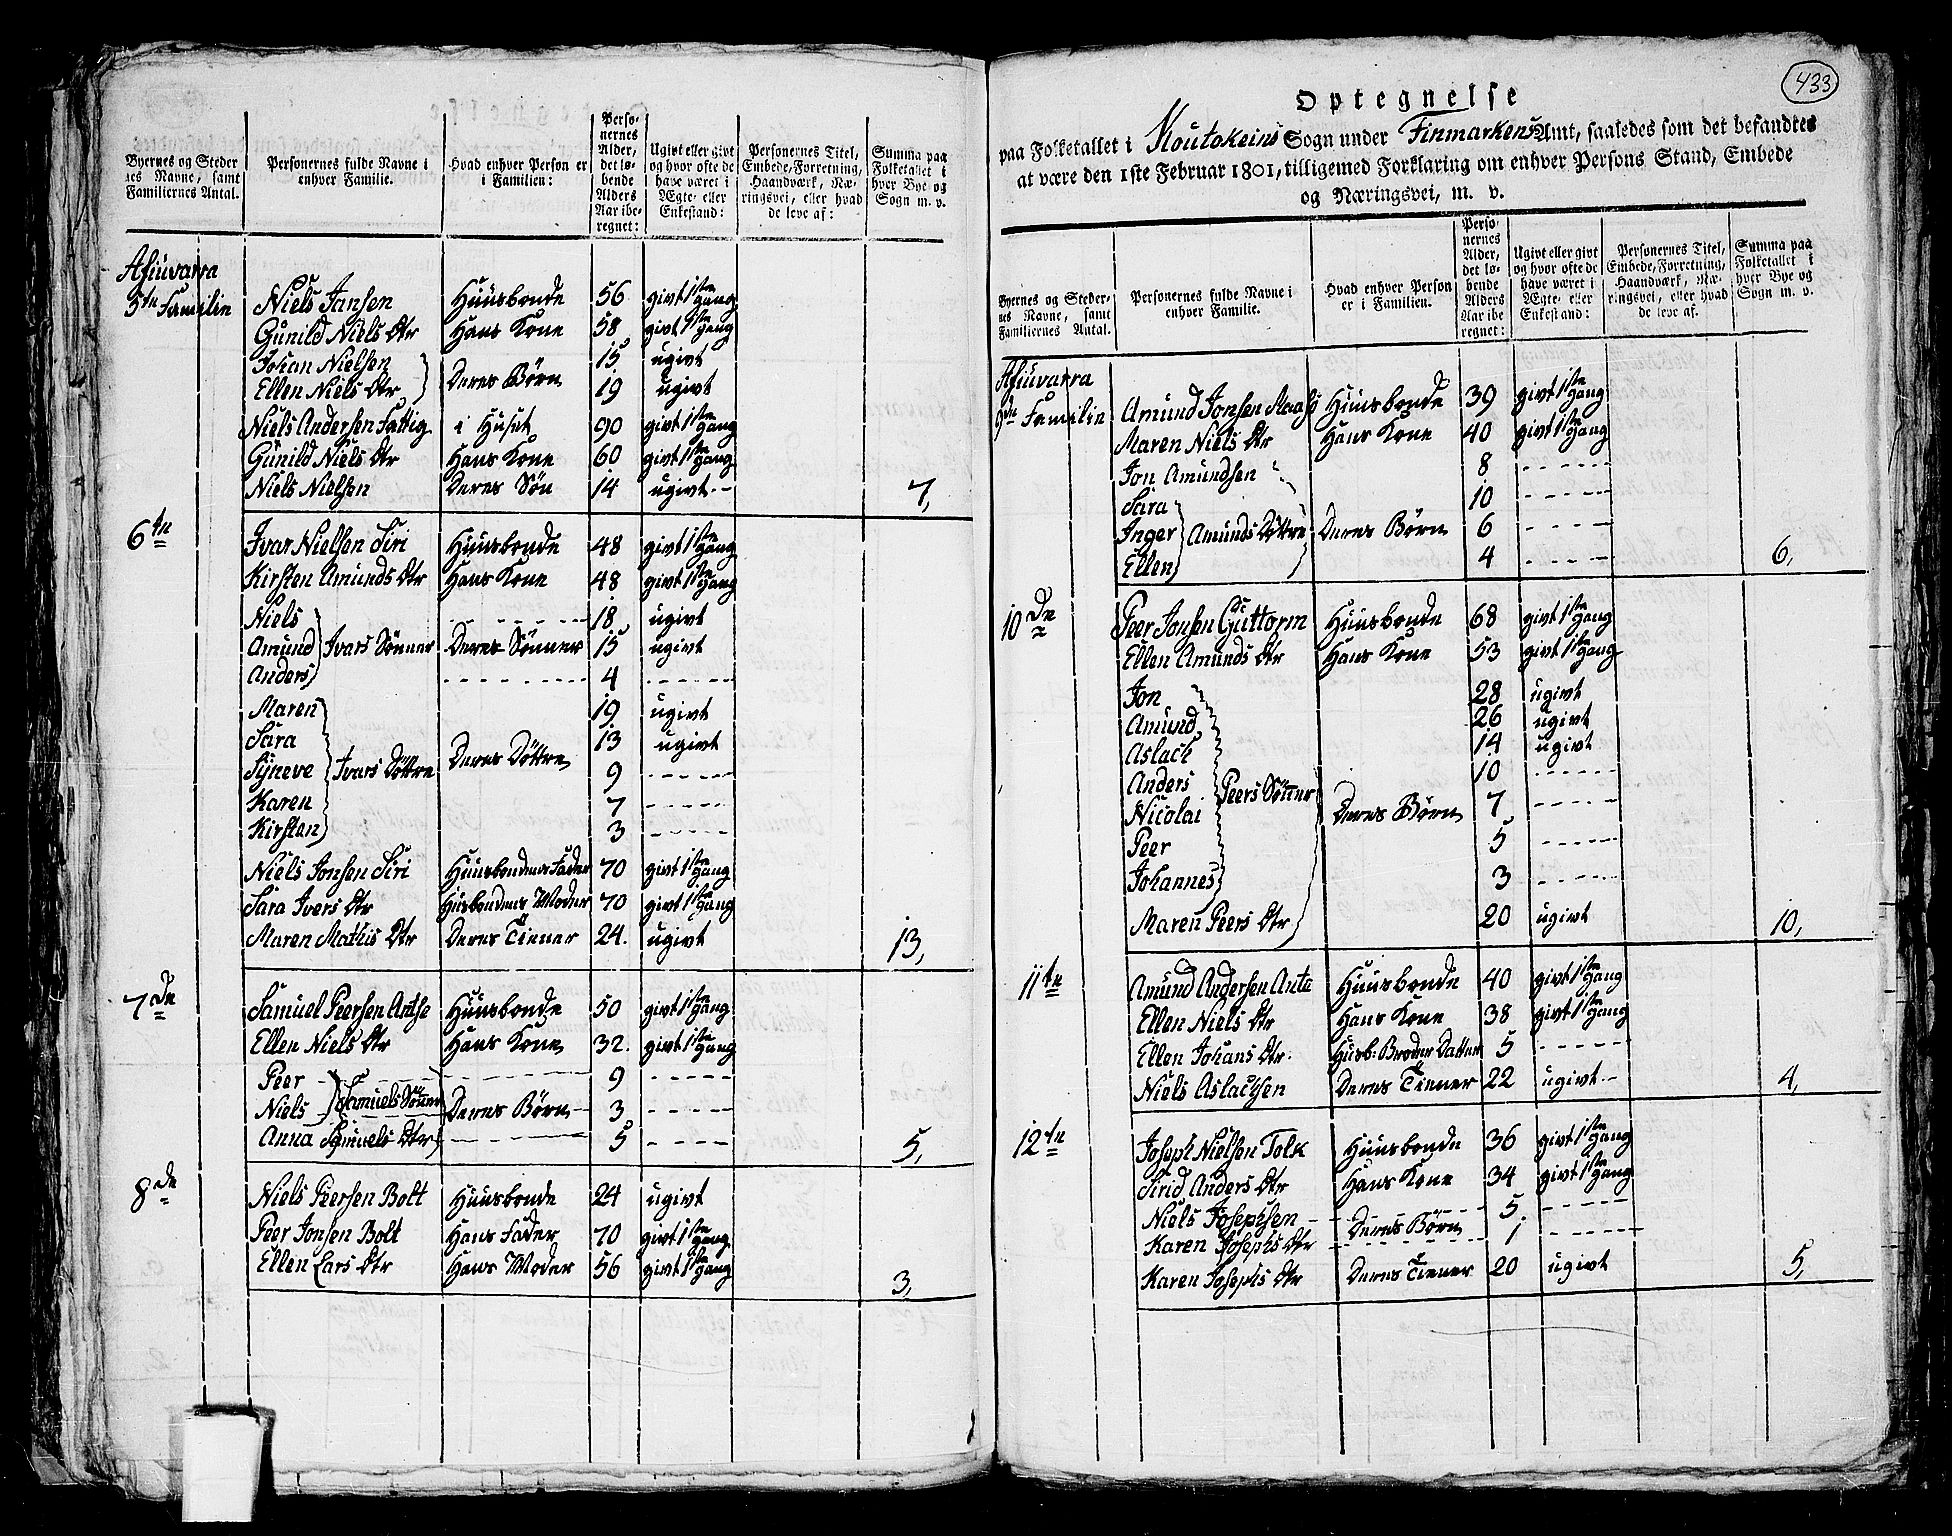 Byernes og Steder
nes Navne, samt
Familiernes Antal.
Personernes fulde Navne i
enhver Familie.
Hvad enhver Person er
i Familien:
Perso-
nernes
Alder,
det lø-
bende
Alders
Aar ibe-
regnet:
Ugivt eller givt
og hvor ofte de
have været i
Ægte- eller
Enkestand:
Personernes Titel,
Embede, Forretning,
Haandværk, Næ-
ringsvei, eller hvad
de leve af:
Summa paa
Folketallet i
hver Bye og
Sogn m. v.
Afiuvarra
5te Familie Niels Jansen Huusbonde 56 givt 1ste gang
Gunild Niels Dtr Hans Kone 58 givt 1ste gang
Johan Nielsen 15 ugivt
Ellen Niels Dtr Deres Børn 19 ugivt
Niels Andersen Fattig i Huset 90 givt 1ste gang
Gunild Niels Dtr Hans Kone 60 givt 1ste gang
Niels Nielsen Deres Søn 14 ugivt 7,
6te Ivar Nielsen Siri Huusbonde 48 givt 1ste gang
Kirsten Amunds Dtr Hans Kone 48 givt 1ste gang
Niels 18 ugivt
Amund Ivars Sønner Deres Sønner 15 ugivt
Anders 4
Maren 19 ugivt
Sara 13 ugivt
Syneve Ivars Døttre Deres Døttre 9
Karen 7
Kirsten 3
Niels Jonsen Siri Huusbondens Fader 70 givt 1ste gang
Sara Ivers Dtr Husbondens Moder 70 givt 1ste gang
Maren Mathis Dtr Deres Tiener 24. ugivt 13,
7de Samuel Peersen Antse Huusbonde 50 givt 1ste gang
Ellen Niels Dtr Hans Kone 32. givt 1ste gang
Peer 9
Niels Samuels Sønner Deres Børn 3
Anna Samuels Dtr 5 5,
8de Niels Peersen Bolt Huusbonde 24 ugivt
Peer Jonsen Bolt Hans Fader 70 givt 1ste gang
Ellen Lars Dtr Hans Moder 56 givt 1ste gang 3,
433
Optegnelse
paa Folketallet i Koutokeins Sogn under Finmarkens Amt, saaledes som det befandtes
at være den 1ste Februar 1801, tilligemed Forklaring om enhver Persons Stand, Embede
og Næringsvei, m. v.
Byernes og Steder-
nes Navne, samt
Familiernes Antal.
Personernes fulde Navne i
enhver Familie.
Hvad enhver Person
er i Familien.
Perso-
nernes
Alder,
det lø-
bende
Alders
Aar ibe-
regnet:
Ugivt eller givt
og hvor ofte de
have været i
Ægte- eller
Enkestand:
Personernes Titel,
Embede, Forretning,
Haandværk, Næ-
ringsvei, eller hvad
de leve af.
Summa paa
Folketallet i
hver Bye og
Sogn m. v.
Afiuvarra
9de Familie Amund Jonsen Huusbonde 39 givt 1ste gang
Maren Niels Dtr Hans Kone 40 givt 1ste gang
Jon Amundsen 8
Sara 10
Inger Amunds Døttre Deres Børn 6
Ellen 4 6,
10de Peer Jonsen Guttorm Huusbonde 68 givt 1ste gang
Ellen Amunds Dtr Hans Kone 53 givt 1ste gang
Jon 28 ugivt
Amund 26 ugivt
Aslach 14 ugivt
Anders 10
Nicolai Peers Sønner Deres Børn 7
Peer 5
Johannes 3
Maren Peers Dtr 20 ugivt 10,
11te Amund Andersen Anta Huusbonde 40 givt 1ste gang
Ellen Niels Dtr Hans Kone 38 givt 1ste gang
Ellen Johans Dtr. Husb: Broder Datter 5
Niels Aslachsen Deres Tiener 22 ugivt 4,
12te Joseph Nielsen Tolk Huusbonde 36 givt 1ste gang
Sirid Anders Dtr Hans Kone 34 givt 1ste gang
Niels Josephsen 5
Karen Josephs Dtr Deres Børn 1
Karen Josephs Dtr Deres Tiener 20 ugivt 5,